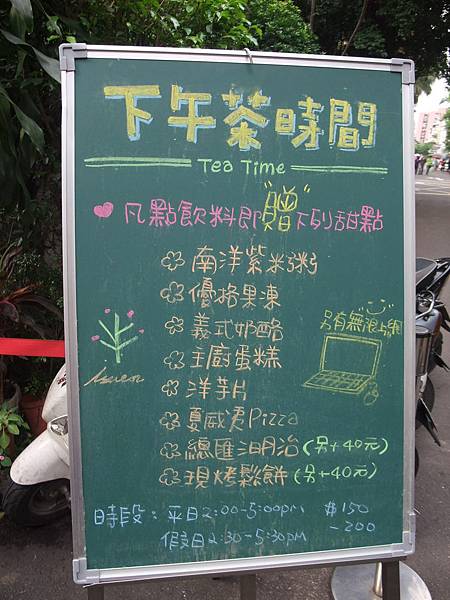 下午茶時間
Tea Time
凡點飲料即"贈"下列甜點
南洋紫米粥
優格果凍
義式奶酪
主廚蛋糕
洋芋片
夏威夷Pizza
總匯三明治(另+40元)
現烤鬆餅(另+40元)
另有無線上網
時段: 平日2:00-5:00PM $150
假日2:30-5:30PM -200